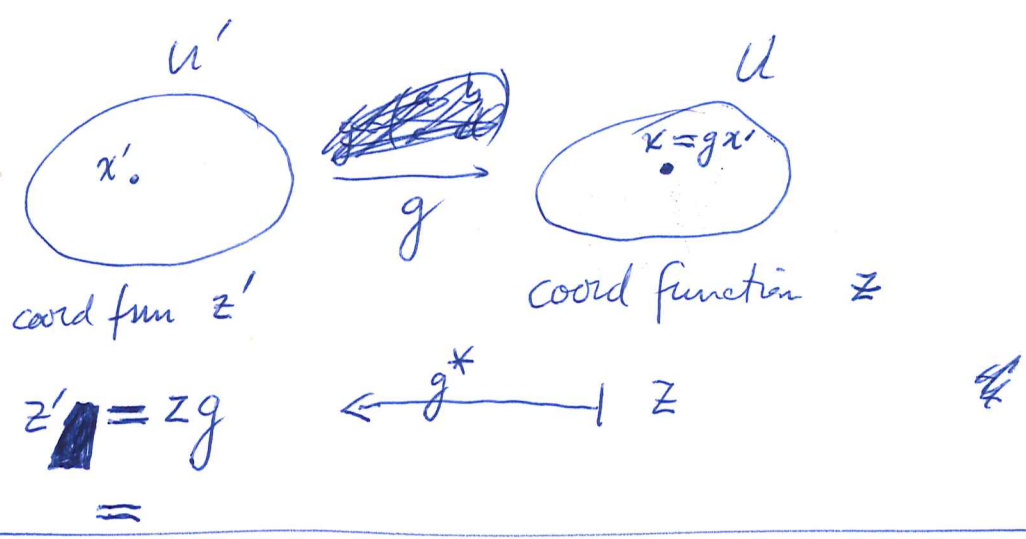 U′ U
x′ x = gx′
g
coord fun z′ coord function z
z′ = zg g* z
=